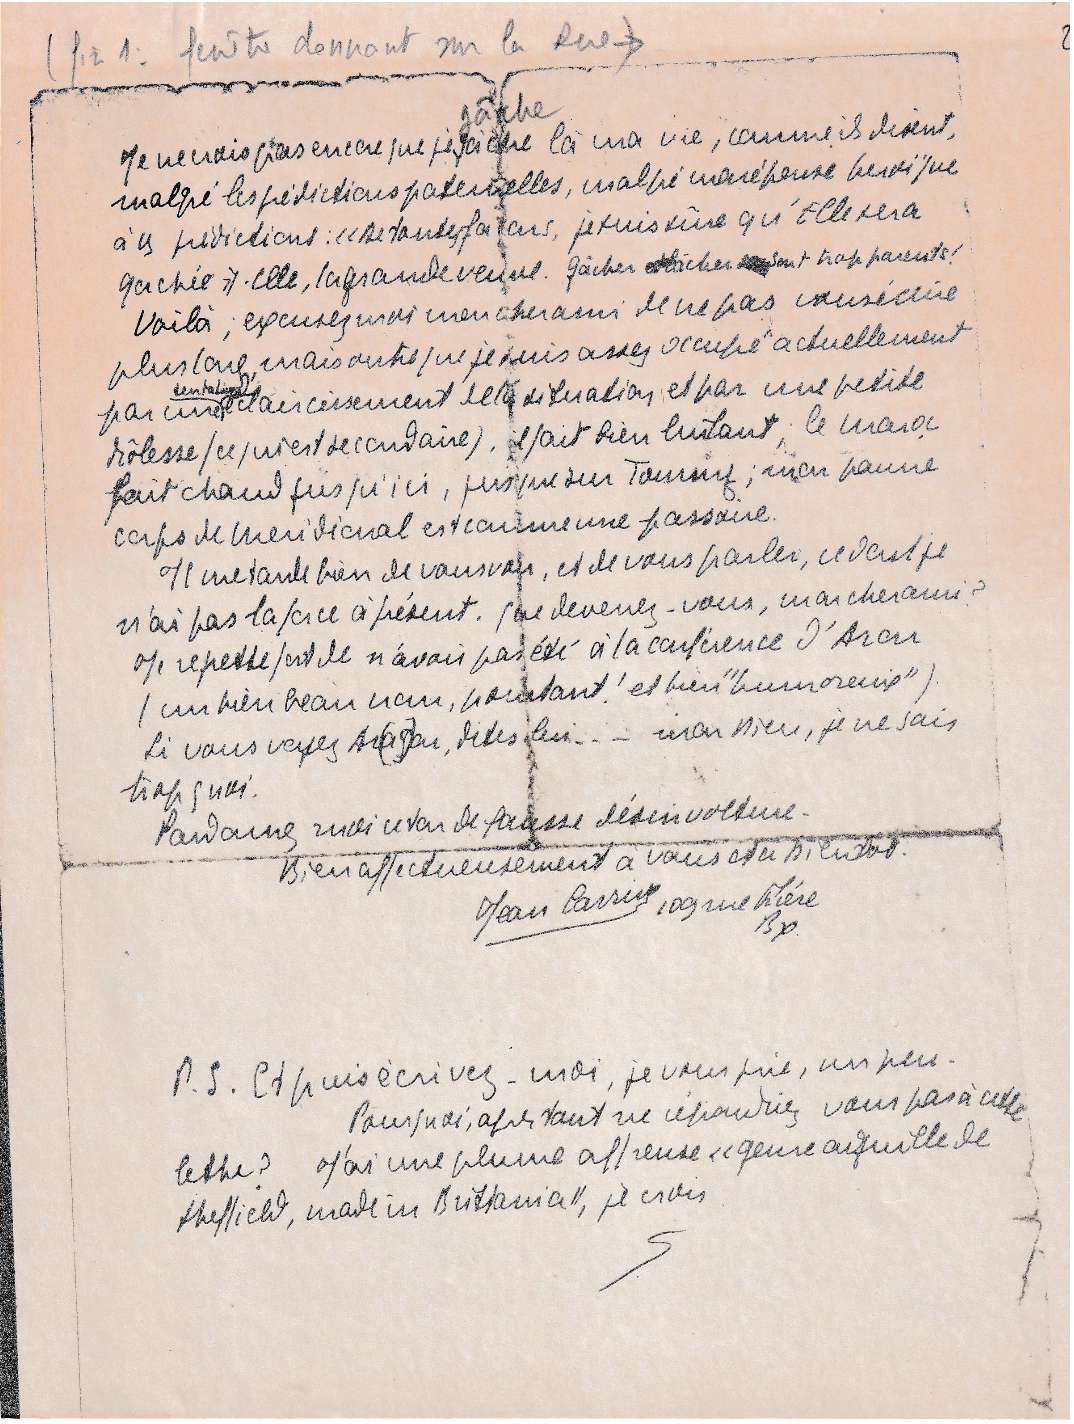 (fig 1. fenêtre donnant sur la Rue →)
2
gâche
Je ne crois pas encore que je gâche là ma vie, comme ils disent,
malgré les prédictions paternelles, malgré ma réponse héroïque
à ces prédictions : « De toutes façons, je suis sûre qu'Elle sera
gachée ». Elle, la grande veuve. Gâcher lâcher sont trop parents!
Voilà ; excusez moi mon cher ami de ne pas vous écrire
plus long, mais outre que je suis assez occupé actuellement
tentative d'
par une éclaircissement de la situation, et par une petite
drôlesse (ce qui est secondaire), il fait bien lourd, le
fait chaud jusqu'ici, jusque sur Tommy ; mon pauvre
corps de Méridional est comme une passoire.
Il me tarde bien de vous voir, et de vous parler, ce dont je
n'ai pas la force à présent. Que devenez-vous, mon cher ami ?
Je regrette fort de n'avoir pas été à la conférence d'Aron
(un bien beau nom, pourtant ! et bien "humoreux").
Si vous voyez Aragon, dites lui - - - mon Dieu, je ne sais
trop quoi.
Pardonnez moi ce ton de fausse désinvolture.
Bien affectueusement à vous et à Bientôt.
Jean 109 rue
Bx
P.S. Et puis écrivez-moi, je vous prie, un peu.
Pourquoi, après tant ne répondriez vous pas à cette
lettre ? J'ai une plume affreuse « genre aiguille de
Sheffield, made in Brittania », je crois